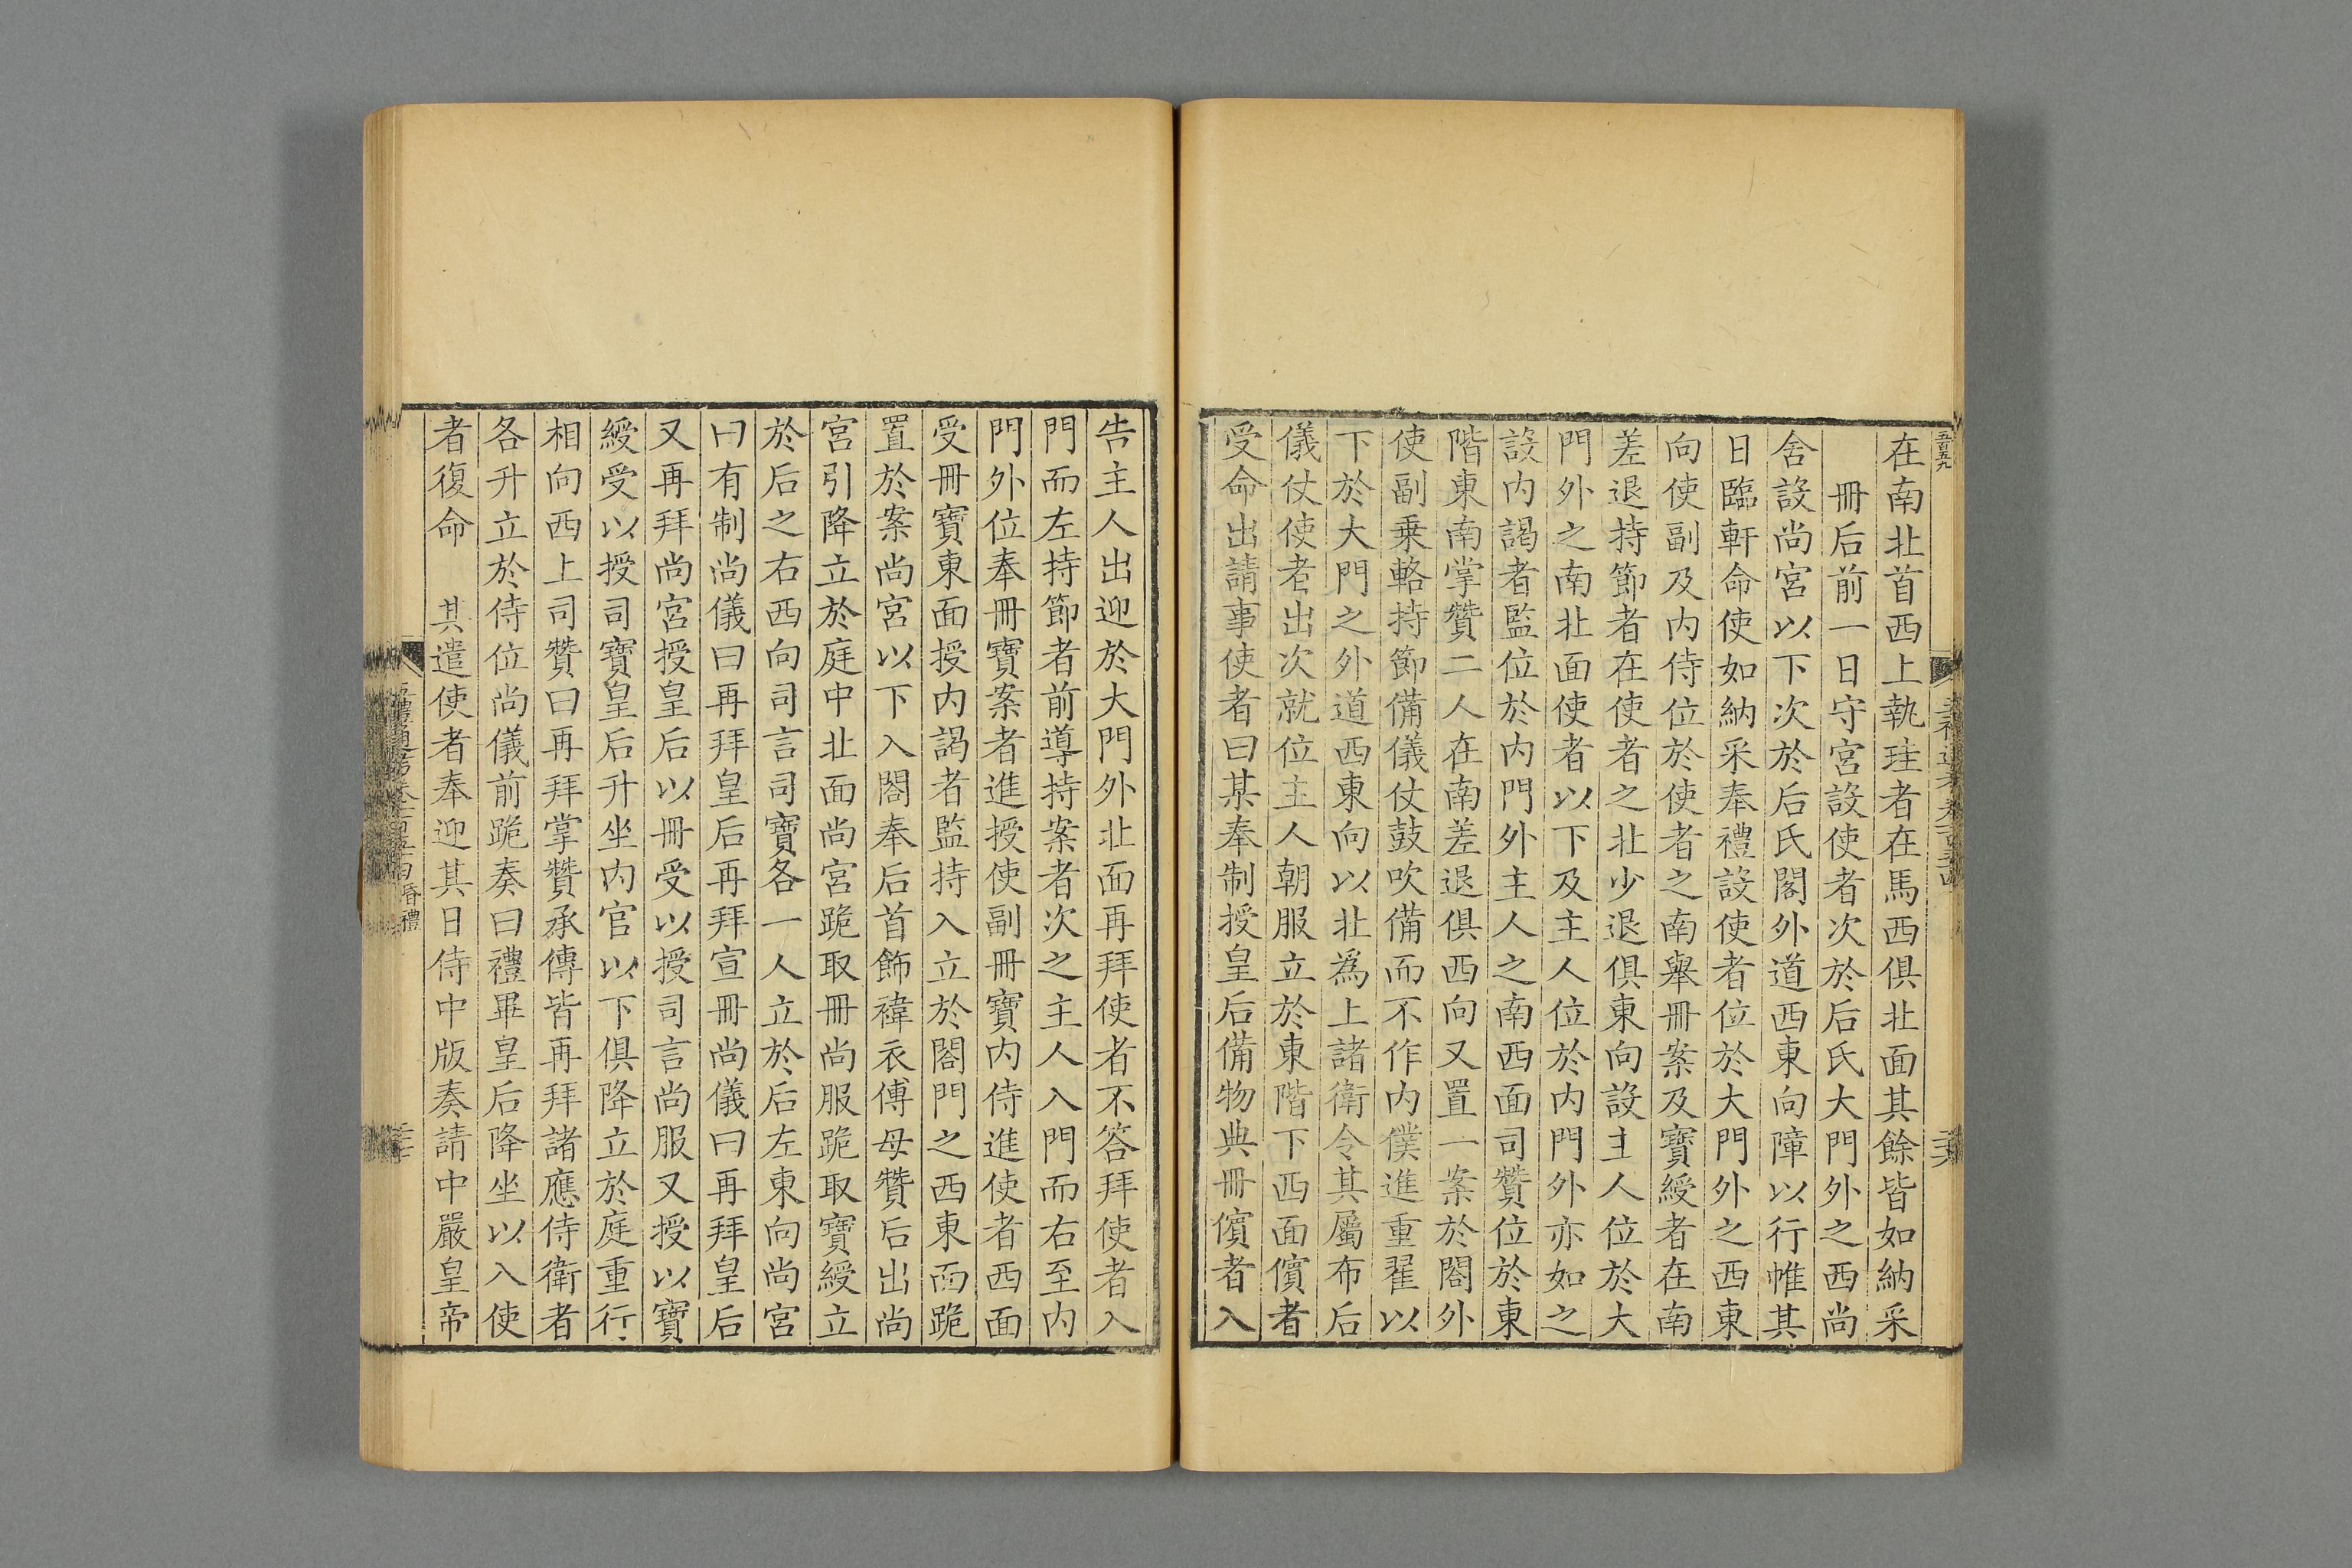 在南北首西上執珪者在馬西俱北面其餘皆如納采
冊后前一日守宮設使者次於后氏大門外之西尚
舍設尚宮以下次於后氏閤外道西東向障以行帷其
日臨軒命使如納采奉禮設使者位於大門外之西東
向使副及内侍位於使者之南舉冊案及寶綬者在南
差退持節者在使者之北少退俱東向設主人位於大
門外之南北面使者以下及主人位於内門外亦如之
設内謁者監位於内門外主人之南西面司贊位於東
階東南掌贊二人在南差退俱西向又置一案於閤外
使副乗輅持節備儀仗鼓吹備而不作内僕進重翟以
下於大門之外道西東向以北爲上諸衛令其屬布后
儀仗使者出次就位主人朝服立於東階下西面儐者
受命出請事使者曰某奉制授皇后備物典冊儐者入
告主人出迎於大門外北面再拜使者不答拜使者入
門而左持節者前導持案者次之主人入門而右至内
門外位奉冊寶案者進授使副冊寶内侍進使者西面
受冊寶東面授内謁者監持入立於閤門之西東面跪
置於案尚宮以下入閤奉后首飾褘衣傅母贊后出尚
宮引降立於庭中北面尚宮跪取冊尚服跪取寶綬立
於后之右西向司言司寶各一人立於后左東向尚宮
曰有制尚儀曰再拜皇后再拜宣冊尚儀曰再拜皇后
又再拜尚宮授皇后以冊受以授司言尚服又授以寶
綬受以授司寶皇后升坐内官以下俱降立於庭重行
相向西上司贊曰再拜掌贊承傳皆再拜諸應侍衛者
各升立於侍位尚儀前跪奏曰禮畢皇后降坐以入使
者復命　其遣使者奉迎其日侍中版奏請中嚴皇帝
昏禮